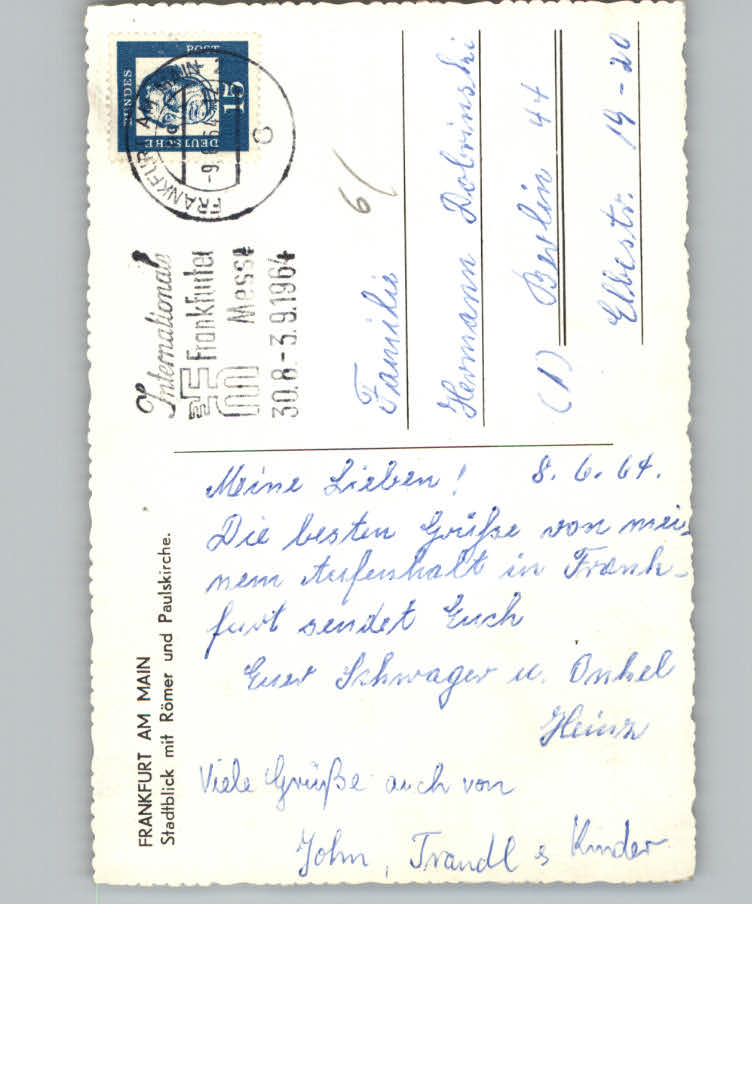 FRANKFURT AM MAIN
Stadtblick mit Römer und Paulskirche.
DEUTSCHE
BUNDES
POST
15
FRANKFURT AM MAIN
Internationale
Frankfurter
Messe
30.8.-3.9.1964
6/
Familie
Hermann Dobrinski
(1) Berlin 44
Elbestr. 19-20
Meine Lieben! 8.6.64.
Die besten Grüße von mei
nem Aufenhalt in Frank-
furt sendet Euch
Euer Schwager u. Onkel
Heinz
Viele Grüße auch von
John, Trandl & Kinder